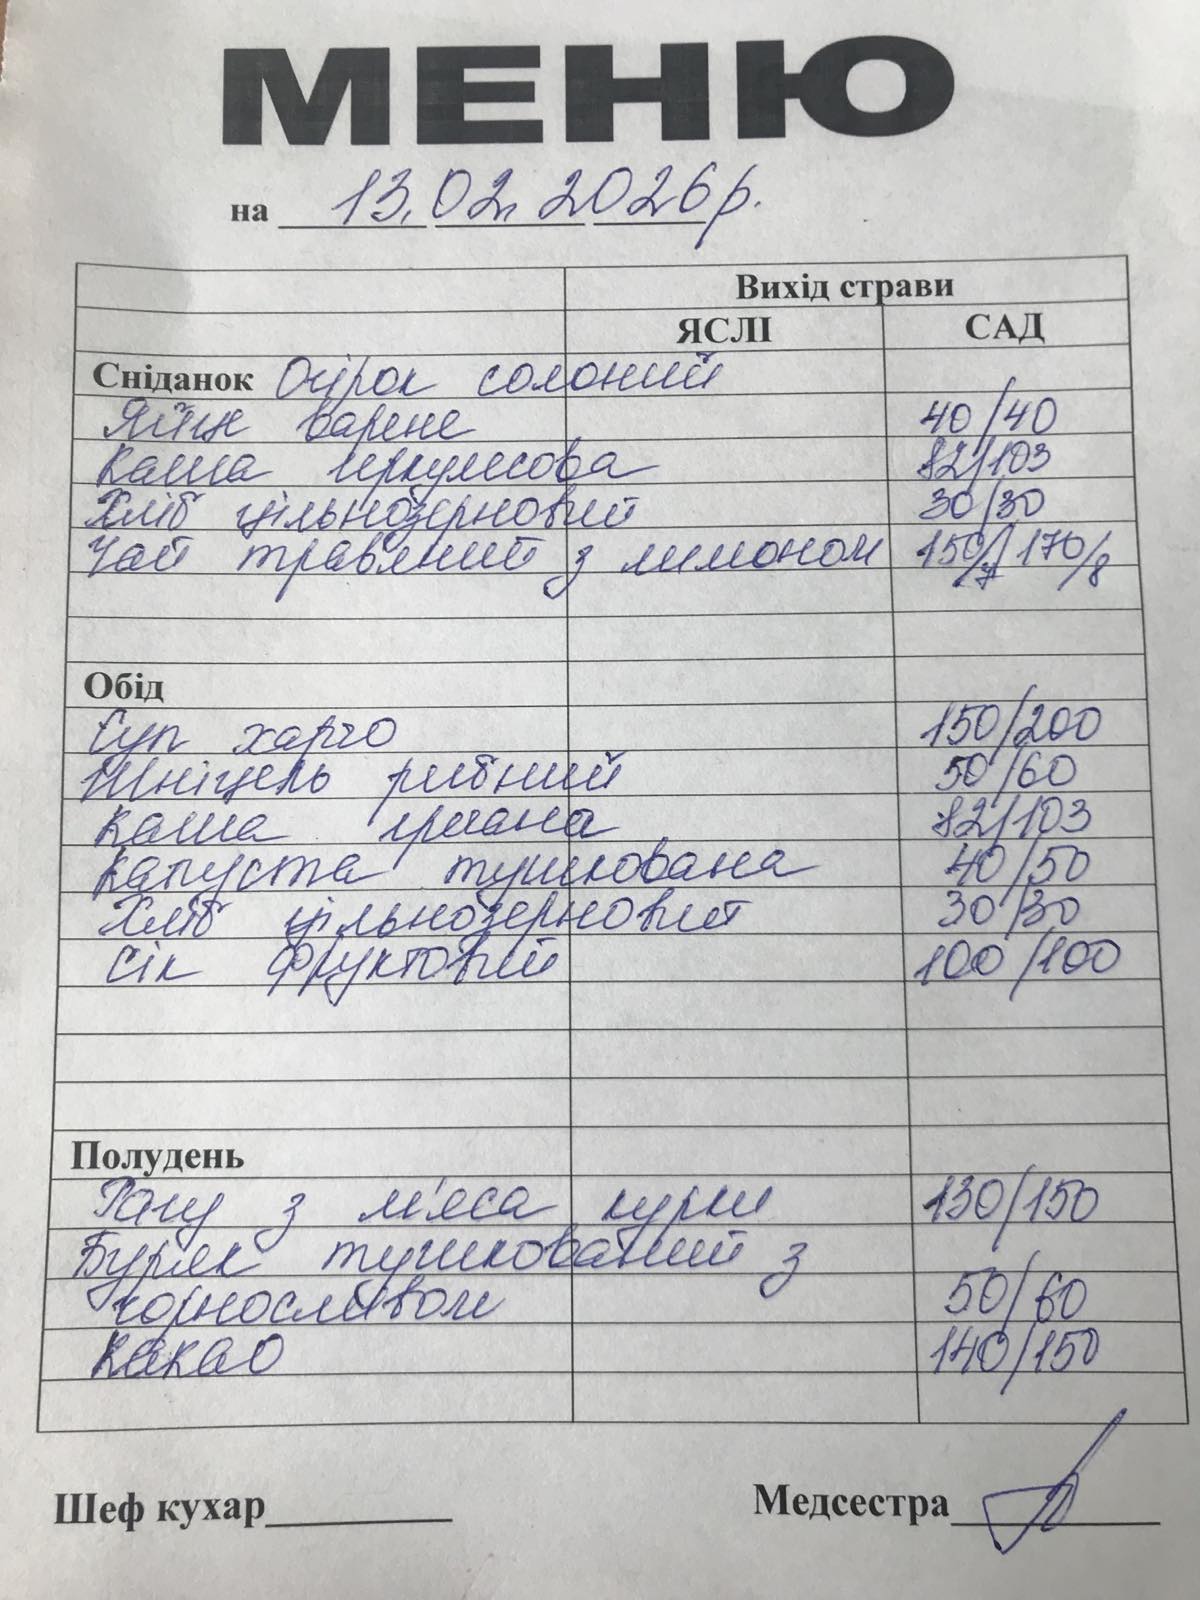 МЕНЮ
на 13.02.2026р.
Вихід страви
ЯСЛІ САД
Сніданок Огірок солоний
Яйце варене 40/40
Каша геркулесова 82/103
Хліб цільнозерновий 30/30
Чай трав'яний з лимоном 150/7/170/8
Обід
Суп харчо 150/200
Шніцель рибний 50/60
Каша гречана 82/103
Капуста тушкована 40/50
Хліб цільнозерновий 30/30
Сік фруктовий 100/100
Полудень
Рагу з м'яса курки 130/150
Буряк тушкований з
чорносливом 50/60
Какао 140/150
Шеф кухар Медсестра